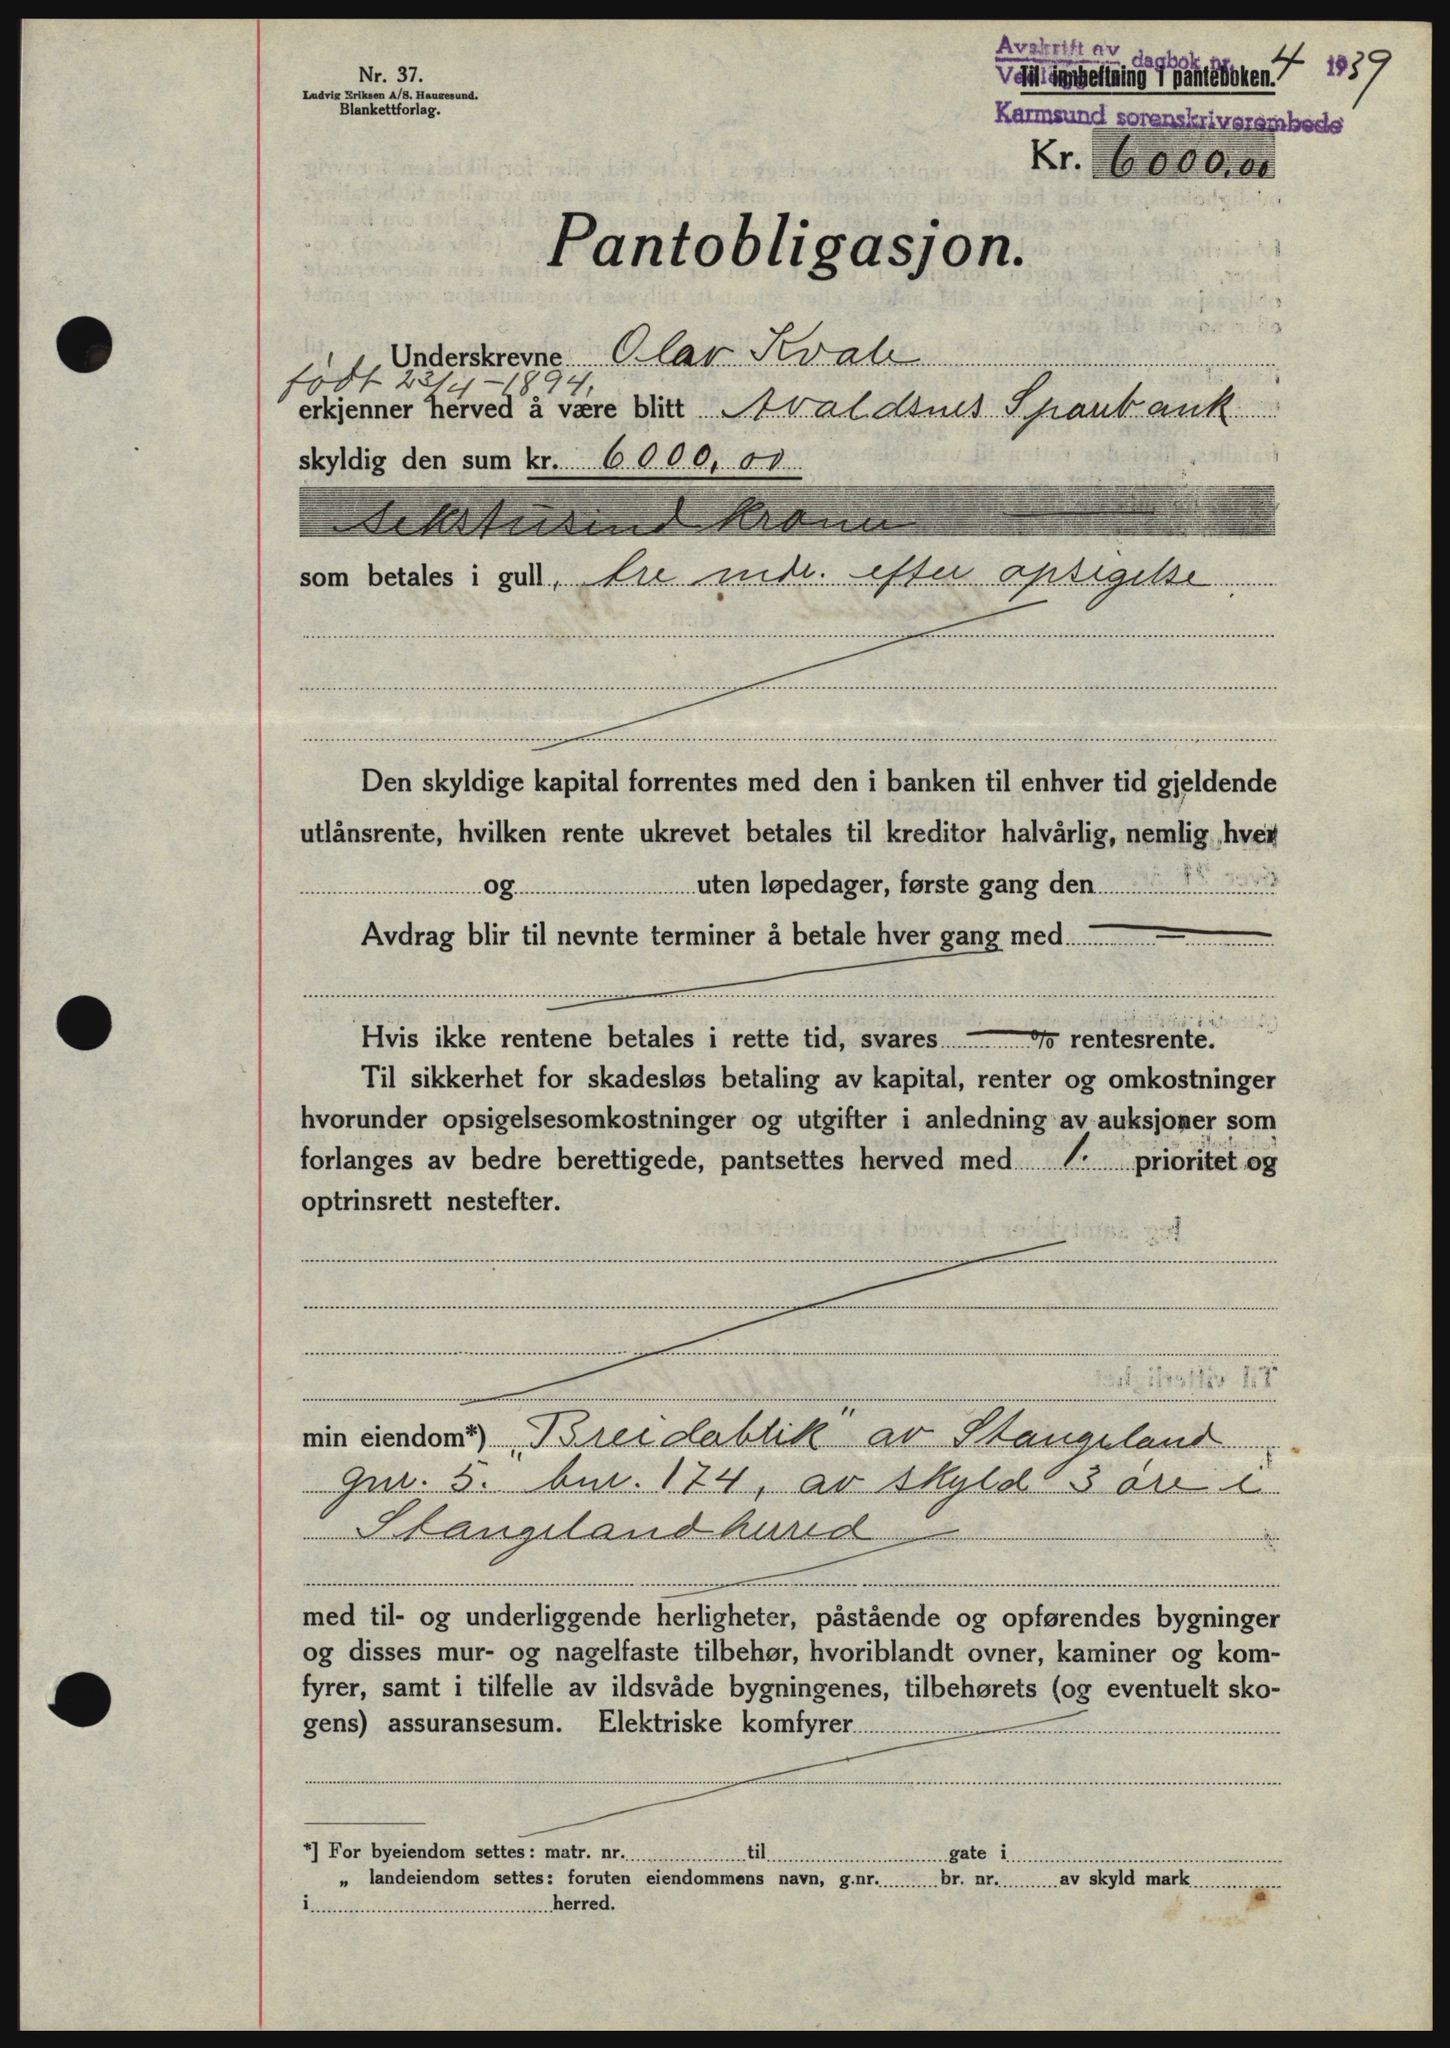 Nr. 37.
Ludvig Eriksen A/S. Haugesund.
Blankettforlag.
Avskrift av dagbok nr. 4 1939
Til innheftning i panteboken.
Karmsund sorenskriverembede
Kr. 6000,00
Pantobligasjon.
Underskrevne Olav Kvale
født 23/4-1894,
erkjenner herved å være blitt Avaldsnes Sparebank
skyldig den sum kr. 6000,00
sekstusind kroner
som betales i gull, tre mdr. efter opsigelse
Den skyldige kapital forrentes med den i banken til enhver tid gjeldende
utlånsrente, hvilken rente ukrevet betales til kreditor halvårlig, nemlig hver
og uten løpedager, første gang den
Avdrag blir til nevnte terminer å betale hver gang med
Hvis ikke rentene betales i rette tid, svares % rentesrente.
Til sikkerhet for skadesløs betaling av kapital, renter og omkostninger
hvorunder opsigelsesomkostninger og utgifter i anledning av auksjoner som
forlanges av bedre berettigede, pantsettes herved med 1. prioritet og
optrinsrett nestefter.
min eiendom*) "Breidablik" av Stangeland
gnr. 5. bnr. 174, av skyld 3 øre i
Stangeland herred
med til- og underliggende herligheter, påstående og opførendes bygninger
og disses mur- og nagelfaste tilbehør, hvoriblandt ovner, kaminer og kom-
fyrer, samt i tilfelle av ildsvåde bygningenes, tilbehørets (og eventuelt sko-
gens) assuransesum. Elektriske komfyrer
*] For byeiendom settes: matr. nr. til gate i
„ landeiendom settes: foruten eiendommens navn, g.nr. br. nr. av skyld mark
i herred.